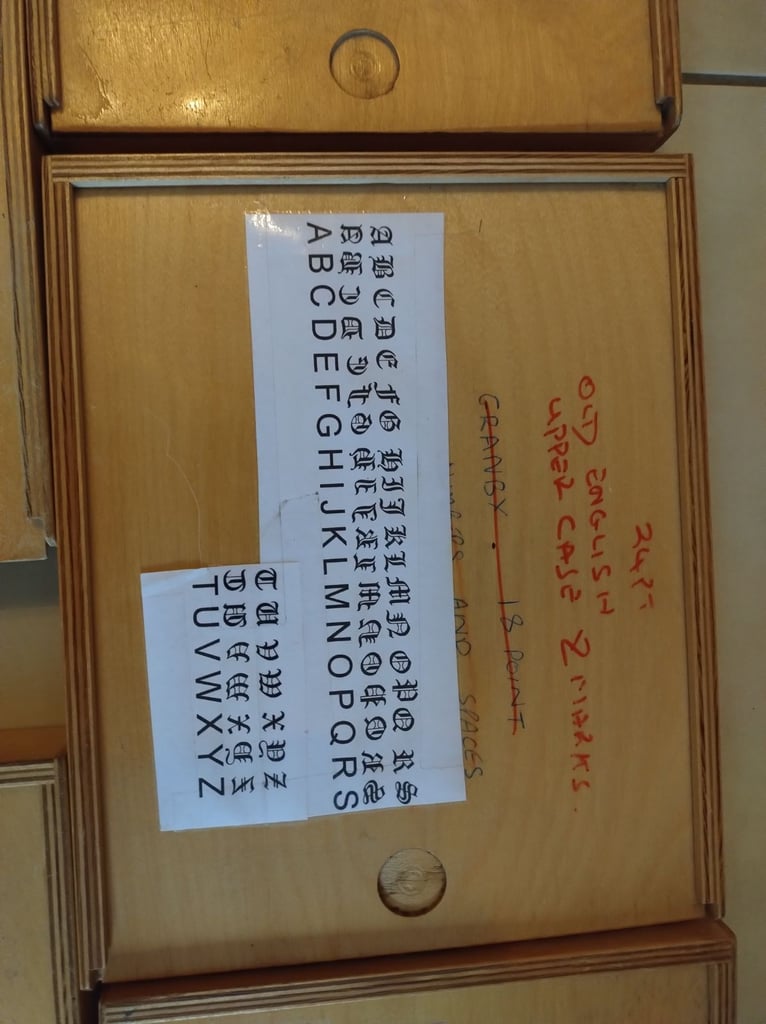 24PT
OLD ENGLISH
UPPER CASE 2 MARKS.
GRANBY . 18 POINT
AND SPACES
A B C D E F G H I J K L M N O P Q R S
A B C D E F G H I J K L M N O P Q R S
T U V W X Y Z
T U V W X Y Z